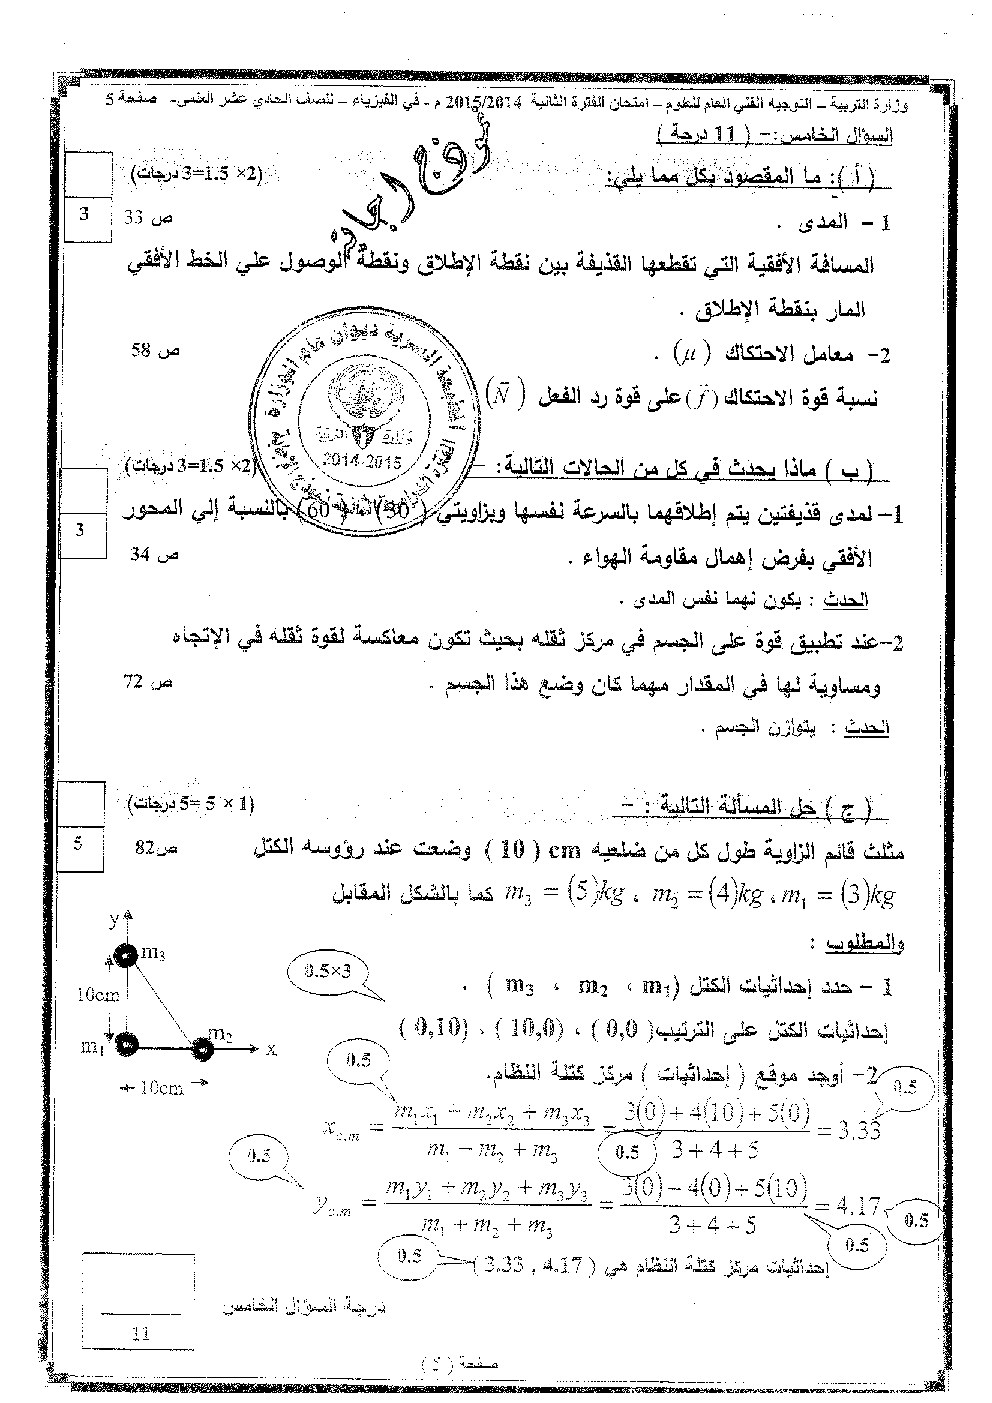 وزارة التربية – التوجيه الفني العام للعلوم – امتحان الفترة الثانية 2015/2014 م - في الفيزياء – للصف الحادي عشر العلمي- صفحة 5
السؤال الخامس:- ( 11 درجة )
( أ ): ما المقصود بكل مما يلي: (2× 1.5=3 درجات)
3
1 – المدى . ص 33
المسافة الأفقية التي تقطعها القذيفة بين نقطة الإطلاق ونقطة الوصول علي الخط الأفقي
المار بنقطة الإطلاق .
2- معامل الاحتكاك ( μ ) . ص 58
نسبة قوة الاحتكاك (f) على قوة رد الفعل ( N )
2014-2015
( ب ) ماذا يحدث في كل من الحالات التالية: – (2× 1.5=3 درجات)
3
1- لمدى قذيفتين يتم إطلاقهما بالسرعة نفسها وبزاويتي ( 30 ) ، ( 60 ) بالنسبة إلي المحور
الأفقي بفرض إهمال مقاومة الهواء . ص 34
الحدث : يكون لهما نفس المدى .
2-عند تطبيق قوة على الجسم في مركز ثقله بحيث تكون معاكسة لقوة ثقله في الإتجاه
ومساوية لها في المقدار مهما كان وضع هذا الجسم . ص 72
الحدث : يتوازن الجسم .
( ج ) حل المسألة التالية : – (1 × 5 =5 درجات)
5
مثلث قائم الزاوية طول كل من ضلعيه cm ( 10 ) وضعت عند رؤوسه الكتل ص82
m₁ = (3)kg ، m₂ = (4)kg ، m₃ = (5)kg كما بالشكل المقابل
والمطلوب :
1 – حدد إحداثيات الكتل (m₁ ، m₂ ، m₃ ) .
0.5×3
إحداثيات الكتل على الترتيب( 0,0 ) ، ( 10,0 ) ، ( 0,10 )
2- أوجد موقع ( إحداثيات ) مركز كتلة النظام.
0.5
0.5
x_{c.m} = (m₁x₁ + m₂x₂ + m₃x₃)/(m₁ + m₂ + m₃) = (3(0)+4(10)+5(0))/(3+4+5) = 3.33
0.5
0.5
y_{c.m} = (m₁y₁ + m₂y₂ + m₃y₃)/(m₁ + m₂ + m₃) = (3(0)+4(0)+5(10))/(3+4+5) = 4.17
0.5
0.5
0.5
إحداثيات مركز كتلة النظام هي ( 3.33 , 4.17 )
y
m₃
10cm
m₁
m₂
x
10cm
درجة السؤال الخامس
11
صفحة ( 5 )